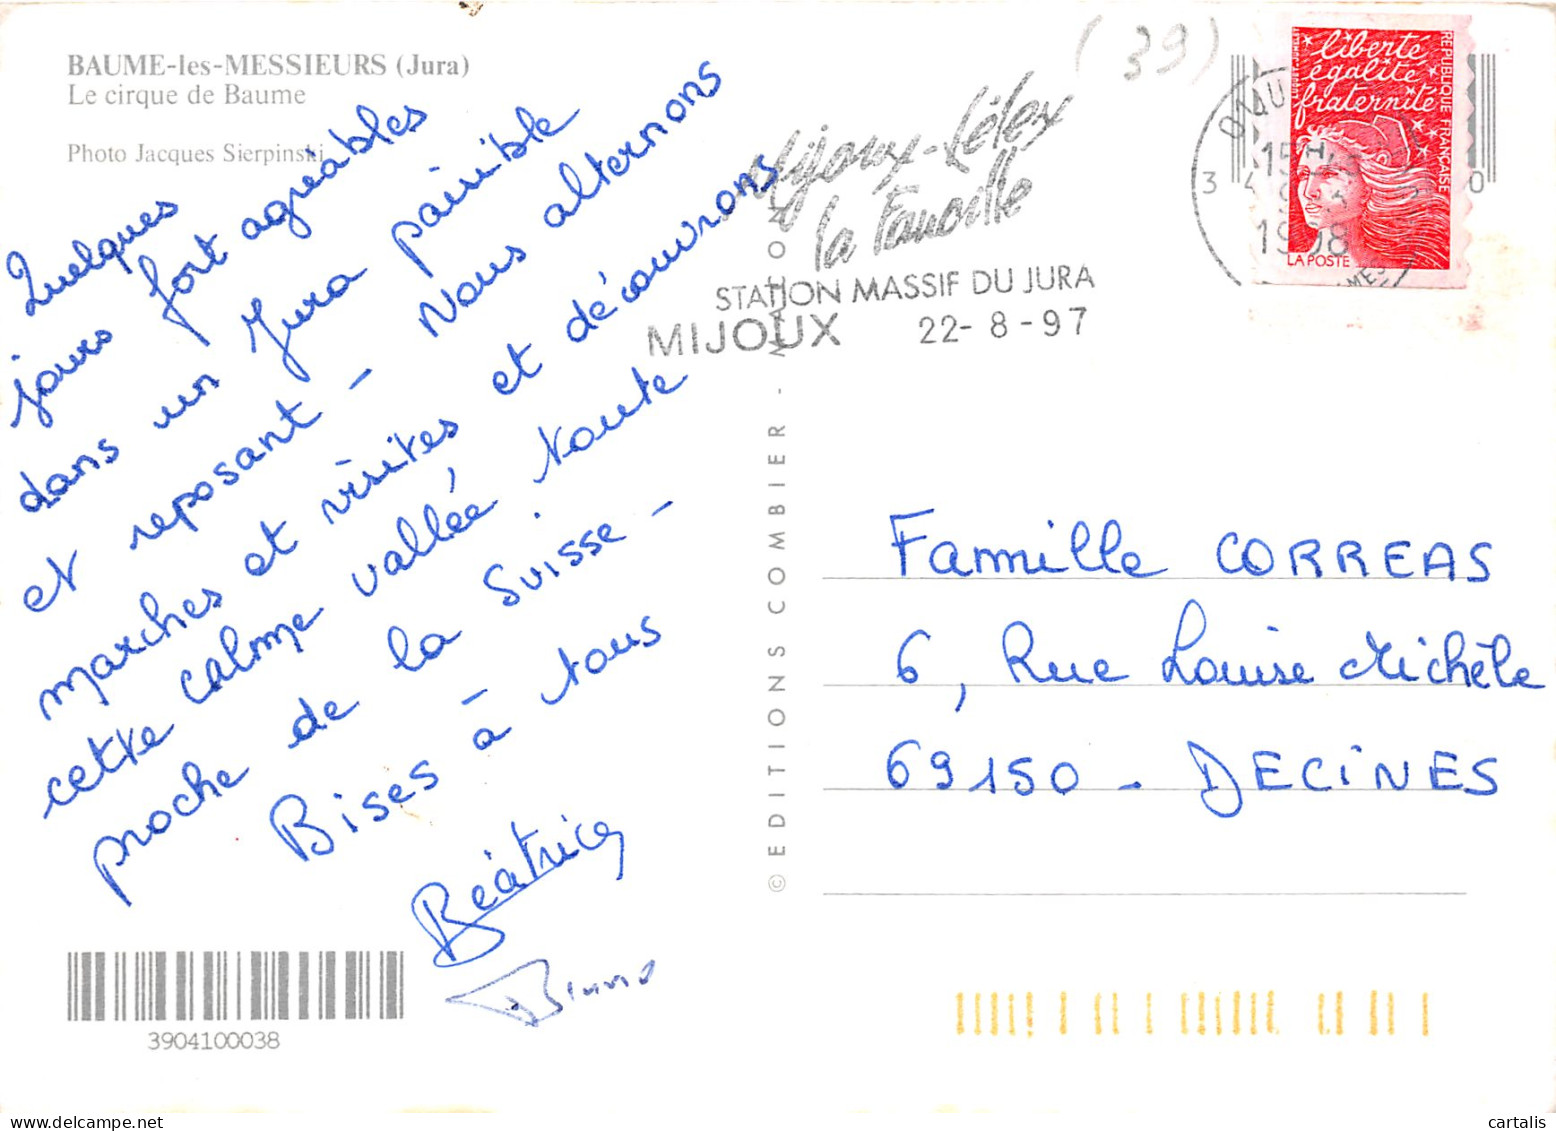 BAUME-les-MESSIEURS (Jura)
Le cirque de Baume
Photo Jacques Sierpinski
Quelques
jours fort agréables
dans un Jura paisible
et reposant - Nous alternons
marches et visites et découvrons
cette calme vallée toute
proche de la Suisse -
Bises à tous
Béatrice
Bruno
3904100038
© EDITIONS COMBIER - MACON
(39)
Mijoux-Lélex
la Faucille
STATION MASSIF DU JURA
MIJOUX 22-8-97
liberté
égalité
fraternité
REPUBLIQUE FRANÇAISE
LA POSTE
1998
Famille CORREAS
6, Rue Louise Michèle
69150 - DECINES
cartalis